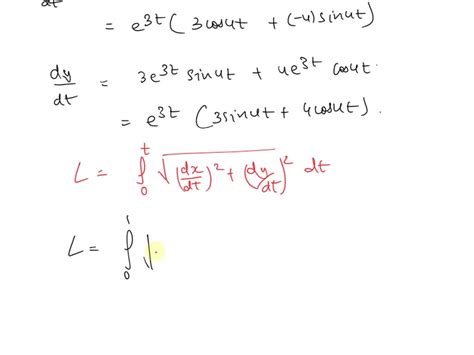 dt
= e^3t (3cos4t + (-4)sin4t)
dy/dt = 3e^3t sin4t + 4e^3t cos4t.
= e^3t (3sin4t + 4cos4t).
L = ∫_0^t √(dx/dt)^2 + (dy/dt)^2 dt
L = ∫_0^1 √